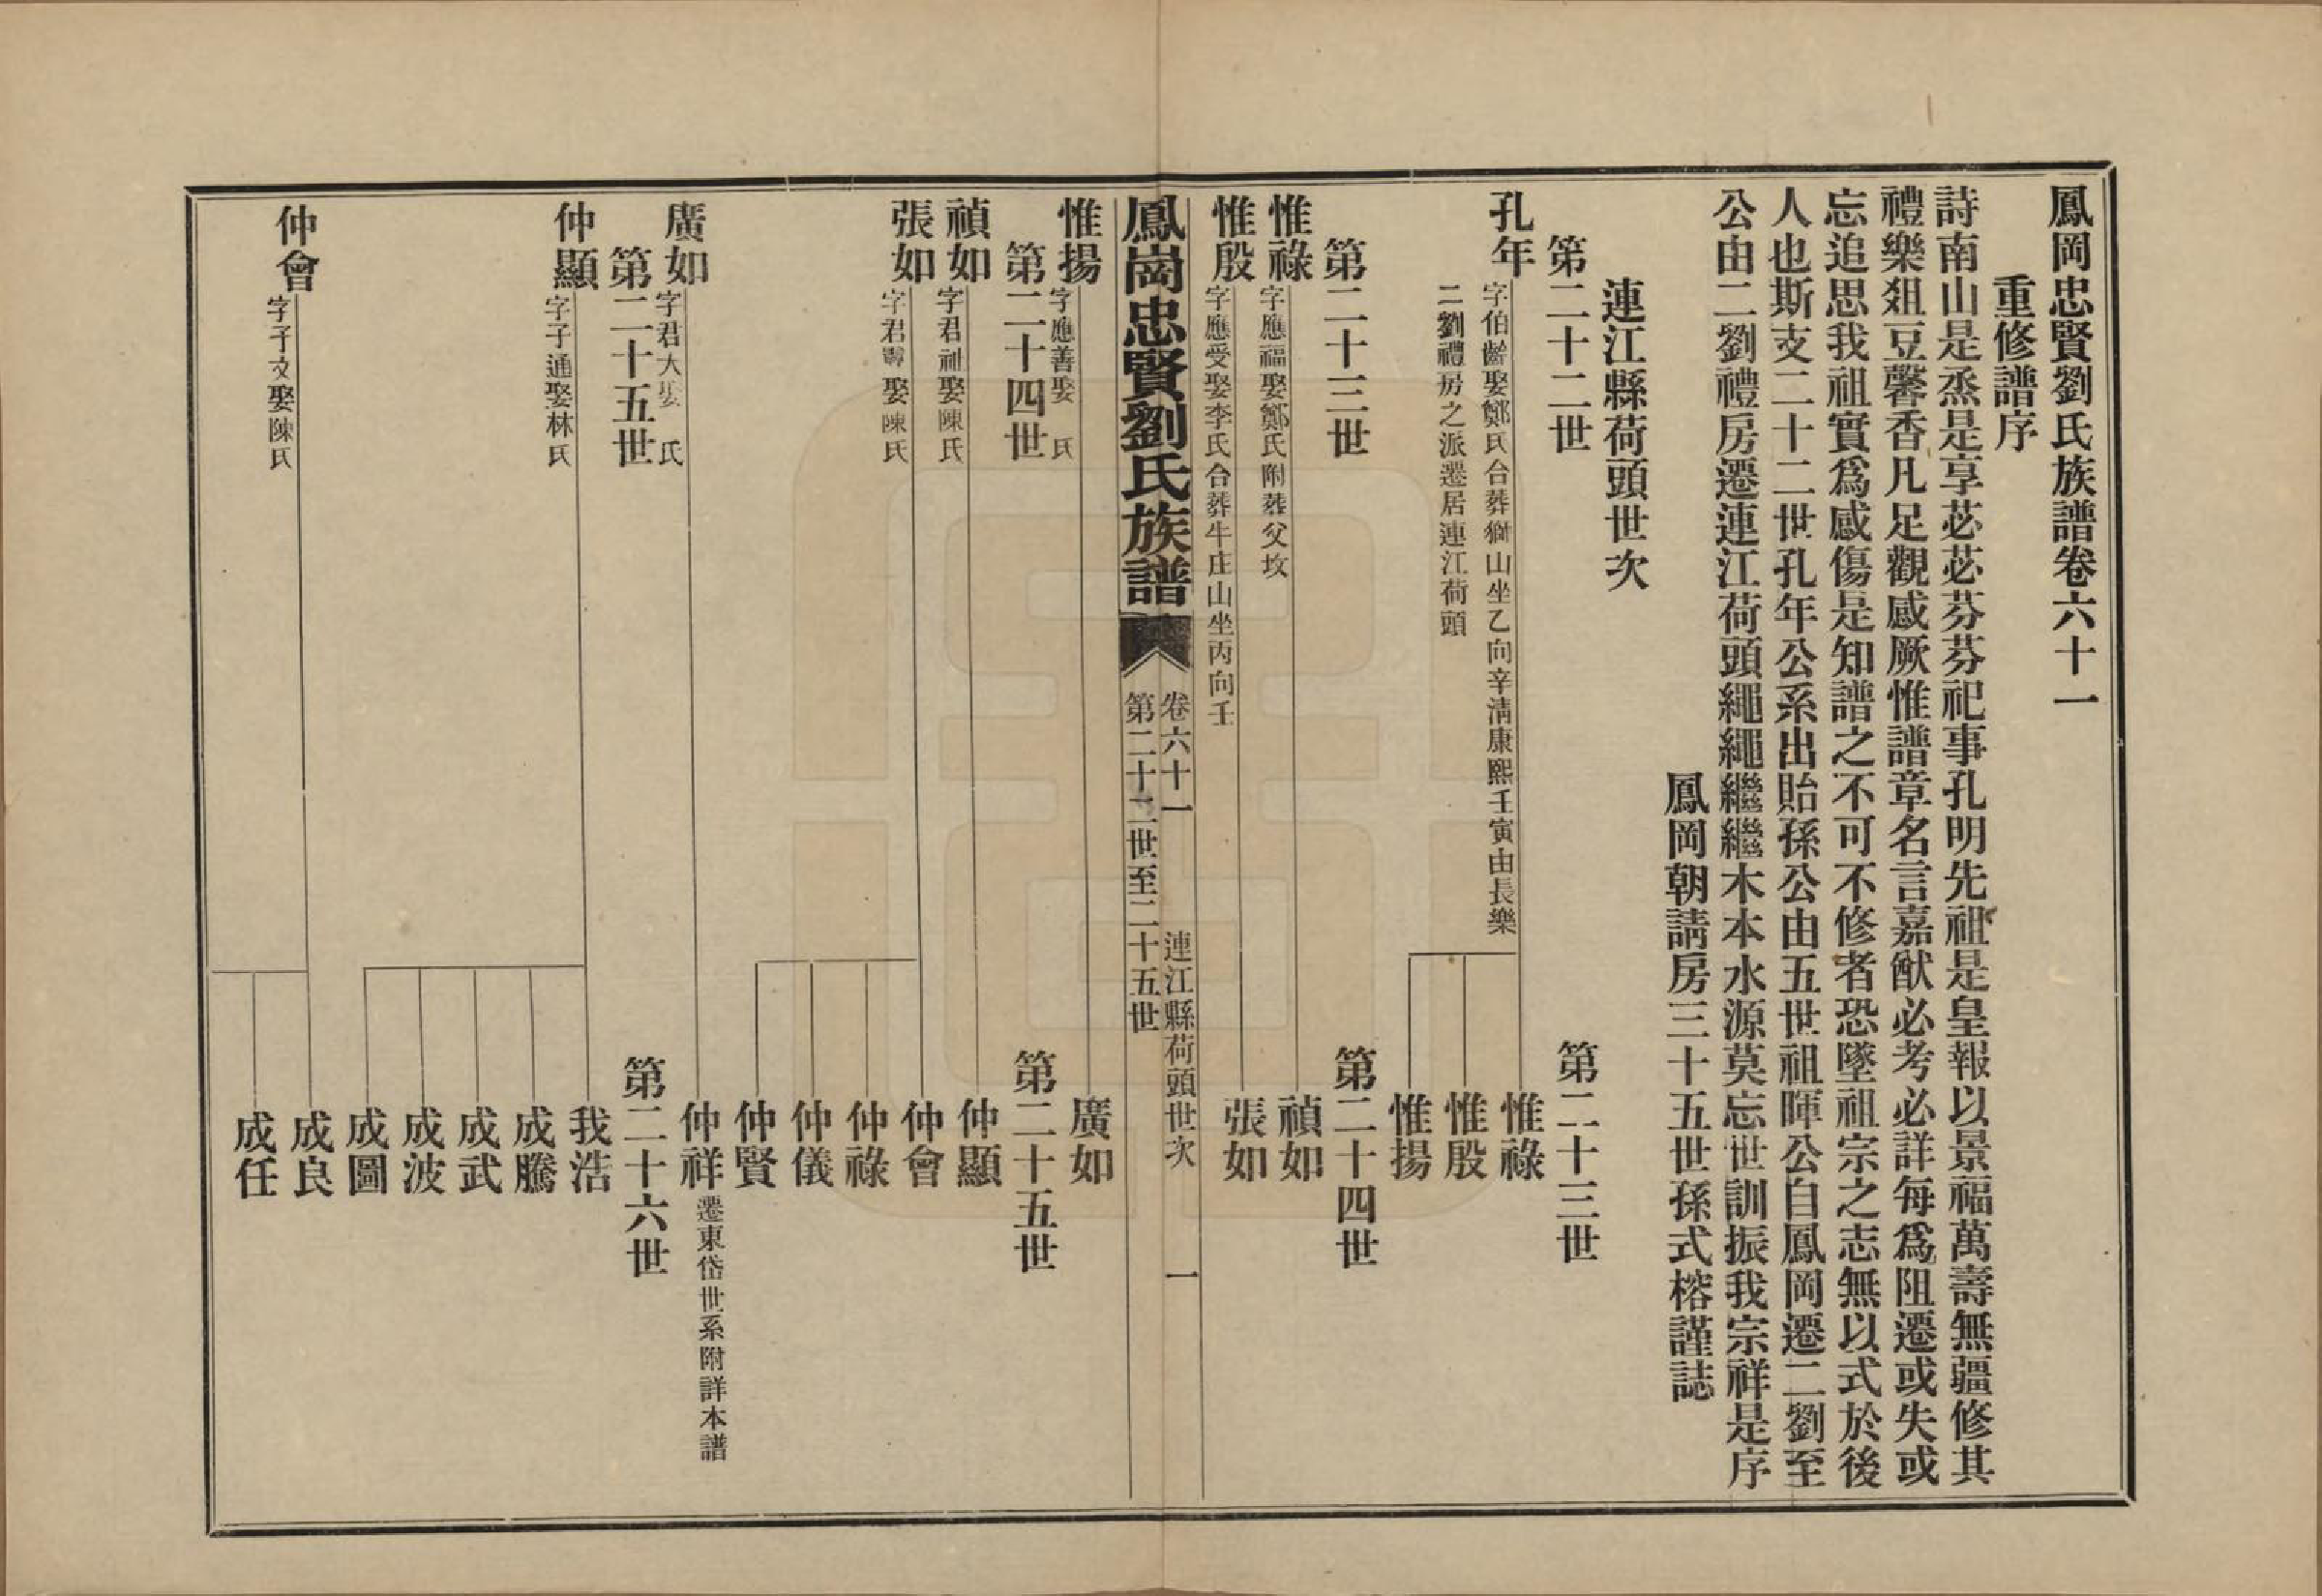 鳳岡忠賢劉氏族譜卷六十一
重修譜序
詩南山是烝是享苾苾芬芬祀事孔明先祖是皇報以景福萬壽無疆修其
禮樂爼豆馨香凡足觀感厥惟譜章名言嘉猷必考必詳每爲阻遷或失或
忘追思我祖實爲感傷是知譜之不可不修者恐墜祖宗之志無以式於後
人也斯支二十二世孔年公系出貽孫公由五世祖暉公自鳳岡遷二劉至
公由二劉禮房遷連江荷頭繩繩繼繼木本水源莫忘世訓振我宗祥是序
鳳岡朝請房三十五世孫式榕謹誌
連江縣荷頭世次
第二十二世
第二十三世
孔年
字伯齡娶鄭氏合葬獅山坐乙向辛清康熙壬寅由長樂
二劉禮房之派遷居連江荷頭
惟祿
惟殷
惟揚
第二十三世
第二十四世
惟祿
字應福娶鄭氏附葬父坟
禎如
惟殷
字應受娶李氏合葬牛庄山坐丙向壬
張如
鳳崗忠賢劉氏族譜
卷六十一
連江縣荷頭世次
一
第二十二世至二十五世
惟揚
字應善娶 氏
廣如
第二十四世
第二十五世
禎如
字君祉娶陳氏
仲顯
張如
字君 娶陳氏
仲會
仲祿
仲儀
仲賢
廣如
字君大娶 氏
仲祥
遷東岱世系附詳本譜
第二十五世
第二十六世
仲顯
字子通娶林氏
我浩
成騰
成武
成波
成圖
仲會
字子文娶陳氏
成良
成任